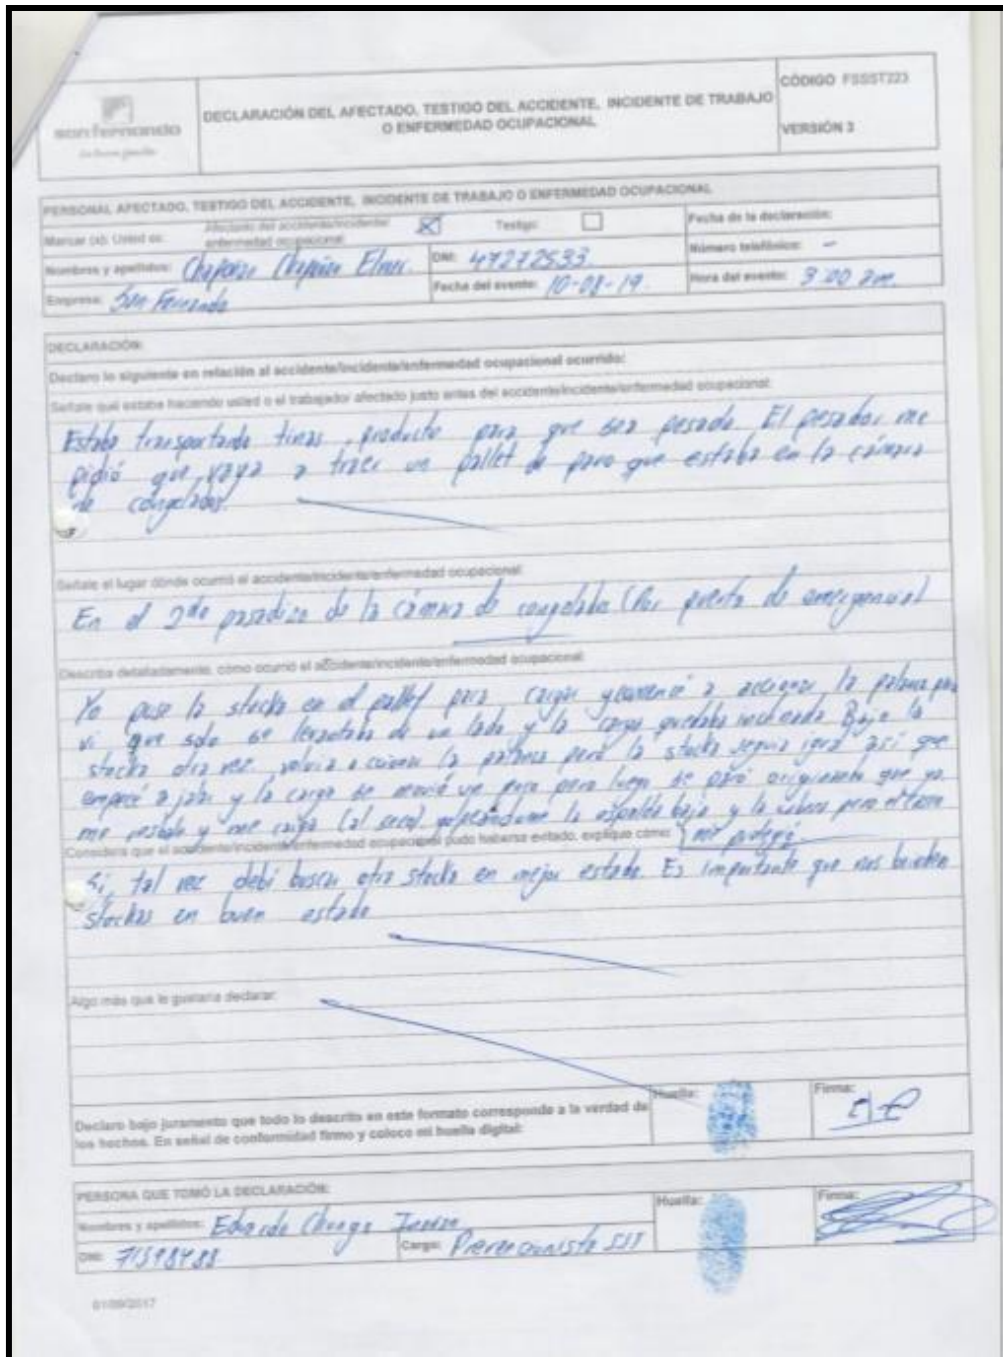 san fernando
DECLARACIÓN DEL AFECTADO, TESTIGO DEL ACCIDENTE, INCIDENTE DE TRABAJO
O ENFERMEDAD OCUPACIONAL
CÓDIGO FSSST223
VERSIÓN 3
PERSONAL AFECTADO, TESTIGO DEL ACCIDENTE, INCIDENTE DE TRABAJO O ENFERMEDAD OCUPACIONAL
Marcar (x): Usted es:
Afectado del accidente/incidente/
enfermedad ocupacional:
Testigo:
Fecha de la declaración:
Nombres y apellidos: Elmer.
DNI: 47272533.
Número telefónico: -
Empresa: San Fernando
Fecha del evento: 10-08-19.
Hora del evento: 3:00 am.
DECLARACIÓN:
Declaro lo siguiente en relación al accidente/incidente/enfermedad ocupacional ocurrido:
Señale qué estaba haciendo usted o el trabajador afectado justo antes del accidente/incidente/enfermedad ocupacional:
Estaba transportando tinas producto para que sea pesado. El pesador me
pidió que vaya a traer un pallet de pavo que estaba en la cámara
de congelados.
Señale el lugar dónde ocurrió el accidente/incidente/enfermedad ocupacional:
En el 2do pasadizo de la cámara de congelados (Por puerta de emergencia)
Describa detalladamente, cómo ocurrió el accidente/incidente/enfermedad ocupacional:
Yo puse la stocka en el pallet para cargar y comencé a accionar la palanca pero
vi que solo se levantaba de un lado y la carga quedaba inclinada. Bajé la
stocka otra vez, volví a accionar la palanca pero la stocka seguía igual así que
empecé a jalar y la carga se movió un poco pero luego se paró originando que yo
me resbale y me caiga (al seco) golpeándome la espalda baja y la cabeza pero el casco
me protegió
Considera que el accidente/incidente/enfermedad ocupacional pudo haberse evitado, explique cómo:
Si, tal vez debí buscar otra stocka en mejor estado. Es importante que nos brinden
stockas en buen estado
Algo más que le gustaría declarar:
Declaro bajo juramento que todo lo descrito en este formato corresponde a la verdad de
los hechos. En señal de conformidad firmo y coloco mi huella digital:
Huella:
Firma:
PERSONA QUE TOMÓ LA DECLARACIÓN:
Nombres y apellidos: Eduardo Chunga
Huella:
Firma:
DNI: 71598488
Cargo: Prevencionista SST
01/09/2017